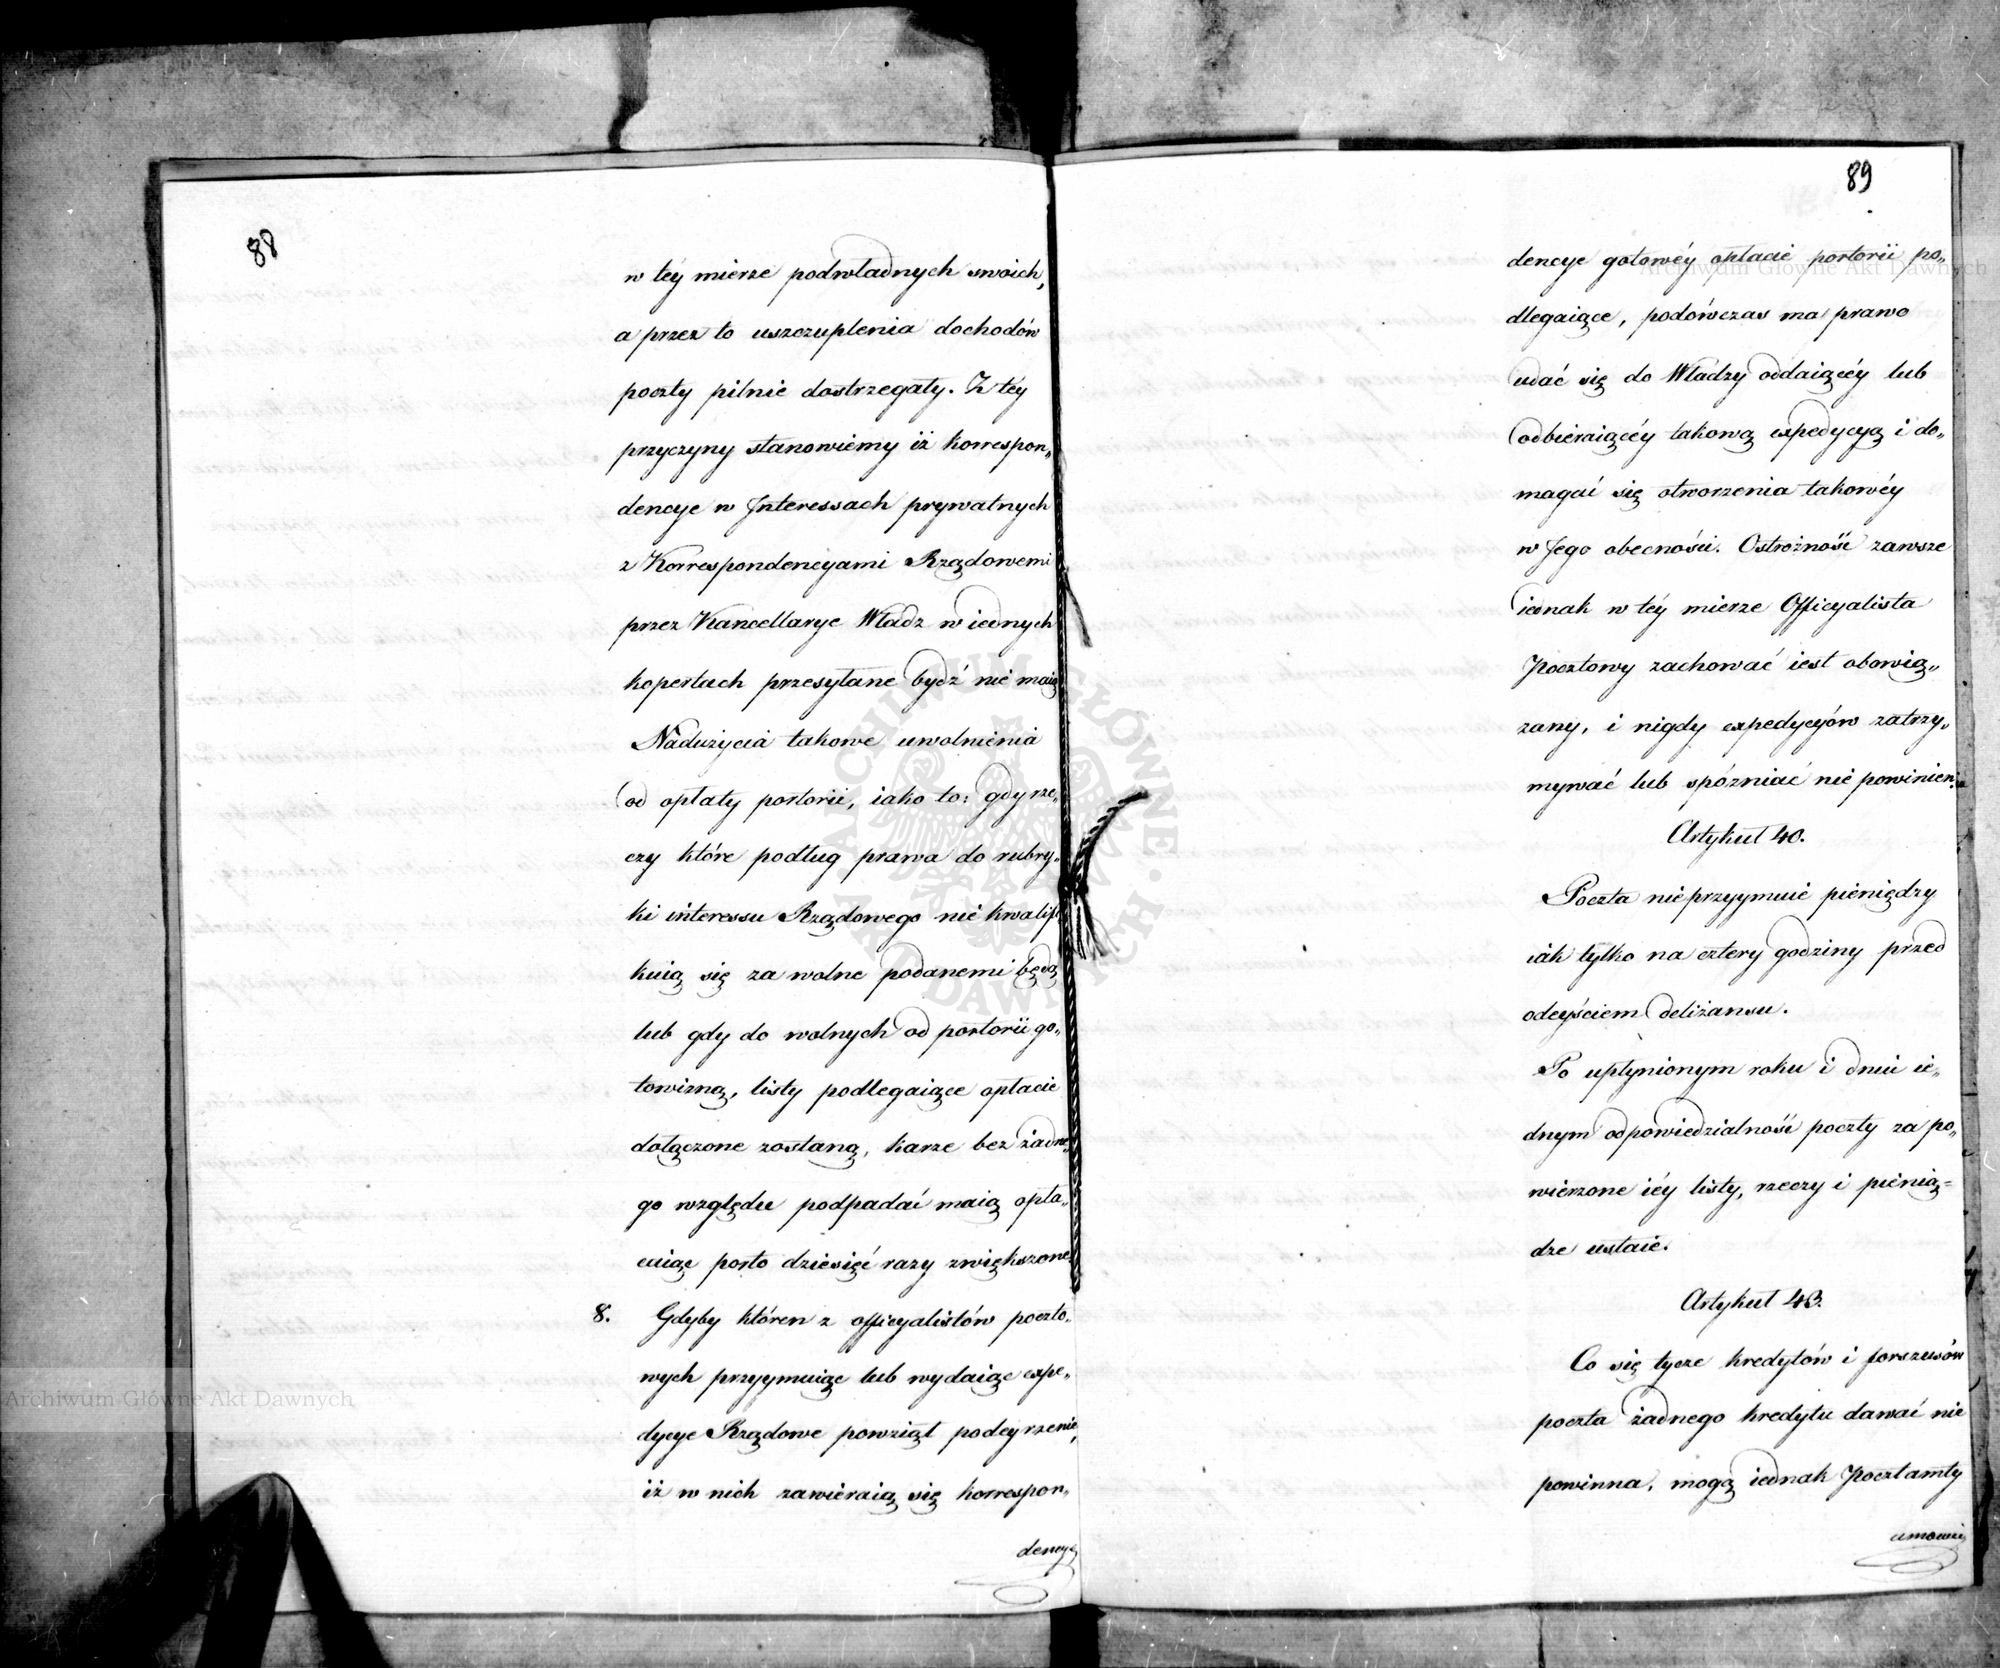 88
w téy mierze podwładnych swoich,
a przez to uszczuplenia dochodów
poczty pilnie dostrzegały. Z téy
przyczyny stanowiemy iż korrespon„
dencye w Jnteressach prywatnych
z Korrespondencyami Rządowemi
przez Kancellarye Władz w iednych
kopertach przesyłane bydź nie maią
Nadużycia takowe uwolnienia
od opłaty portorii, iako to: gdy rze„
czy które podług prawa do rubry„
ki interessu Rządowego nie kwalifi
kuią się za wolne podanemi będą
lub gdy do wolnych od portorii go„
towizną, listy podlegaiące opłacie
dołączone zostaną, karze bez żadne„
go względu podpadać maią opła„
cuiąc porto dziesięć razy zwiększone.
8. Gdyby któren z officyalistów poczto„
wych przyymuiąc lub wydaiąc expe„
dycye Rządowe powziął podeyrzenie,
iż w nich zawieraią się korrespon„
dencye
89
dencye gotowéy opłacie portorii po„
dlegaiące, podówczas ma prawo
udać się do Władzy oddaiącéy lub
odbieraiącéy takową expedycyą i do„
magać się otworzenia takowéy
w Jego obecności. Ostrożność zawsze
iednak w téy mierze Officyalista
Pocztowy zachować iest obowią„
zany, i nigdy expedycyów zatrzy„
mywać lub spóżniać nie powinien.
Artykuł 40.
Poczta nie przyymuie pieniędzy
iak tylko na cztery godziny przed
odeyściem deliżansu.
Po upłynionym roku i dniu ie„
dnym odpowiedzialność poczty za po„
wierzone iéy listy, rzeczy i pienią=
dze ustaie.
Artykuł 43.
Co się tycze kredytów i forszusów
poczta żadnego kredytu dawać nie
powinna, mogą iednak Pocztamty
umowie
Archiwum Główne Akt Dawnych
Archiwum Główne Akt Dawnych
ARCHIWUM GŁÓWNE AKT DAWNYCH